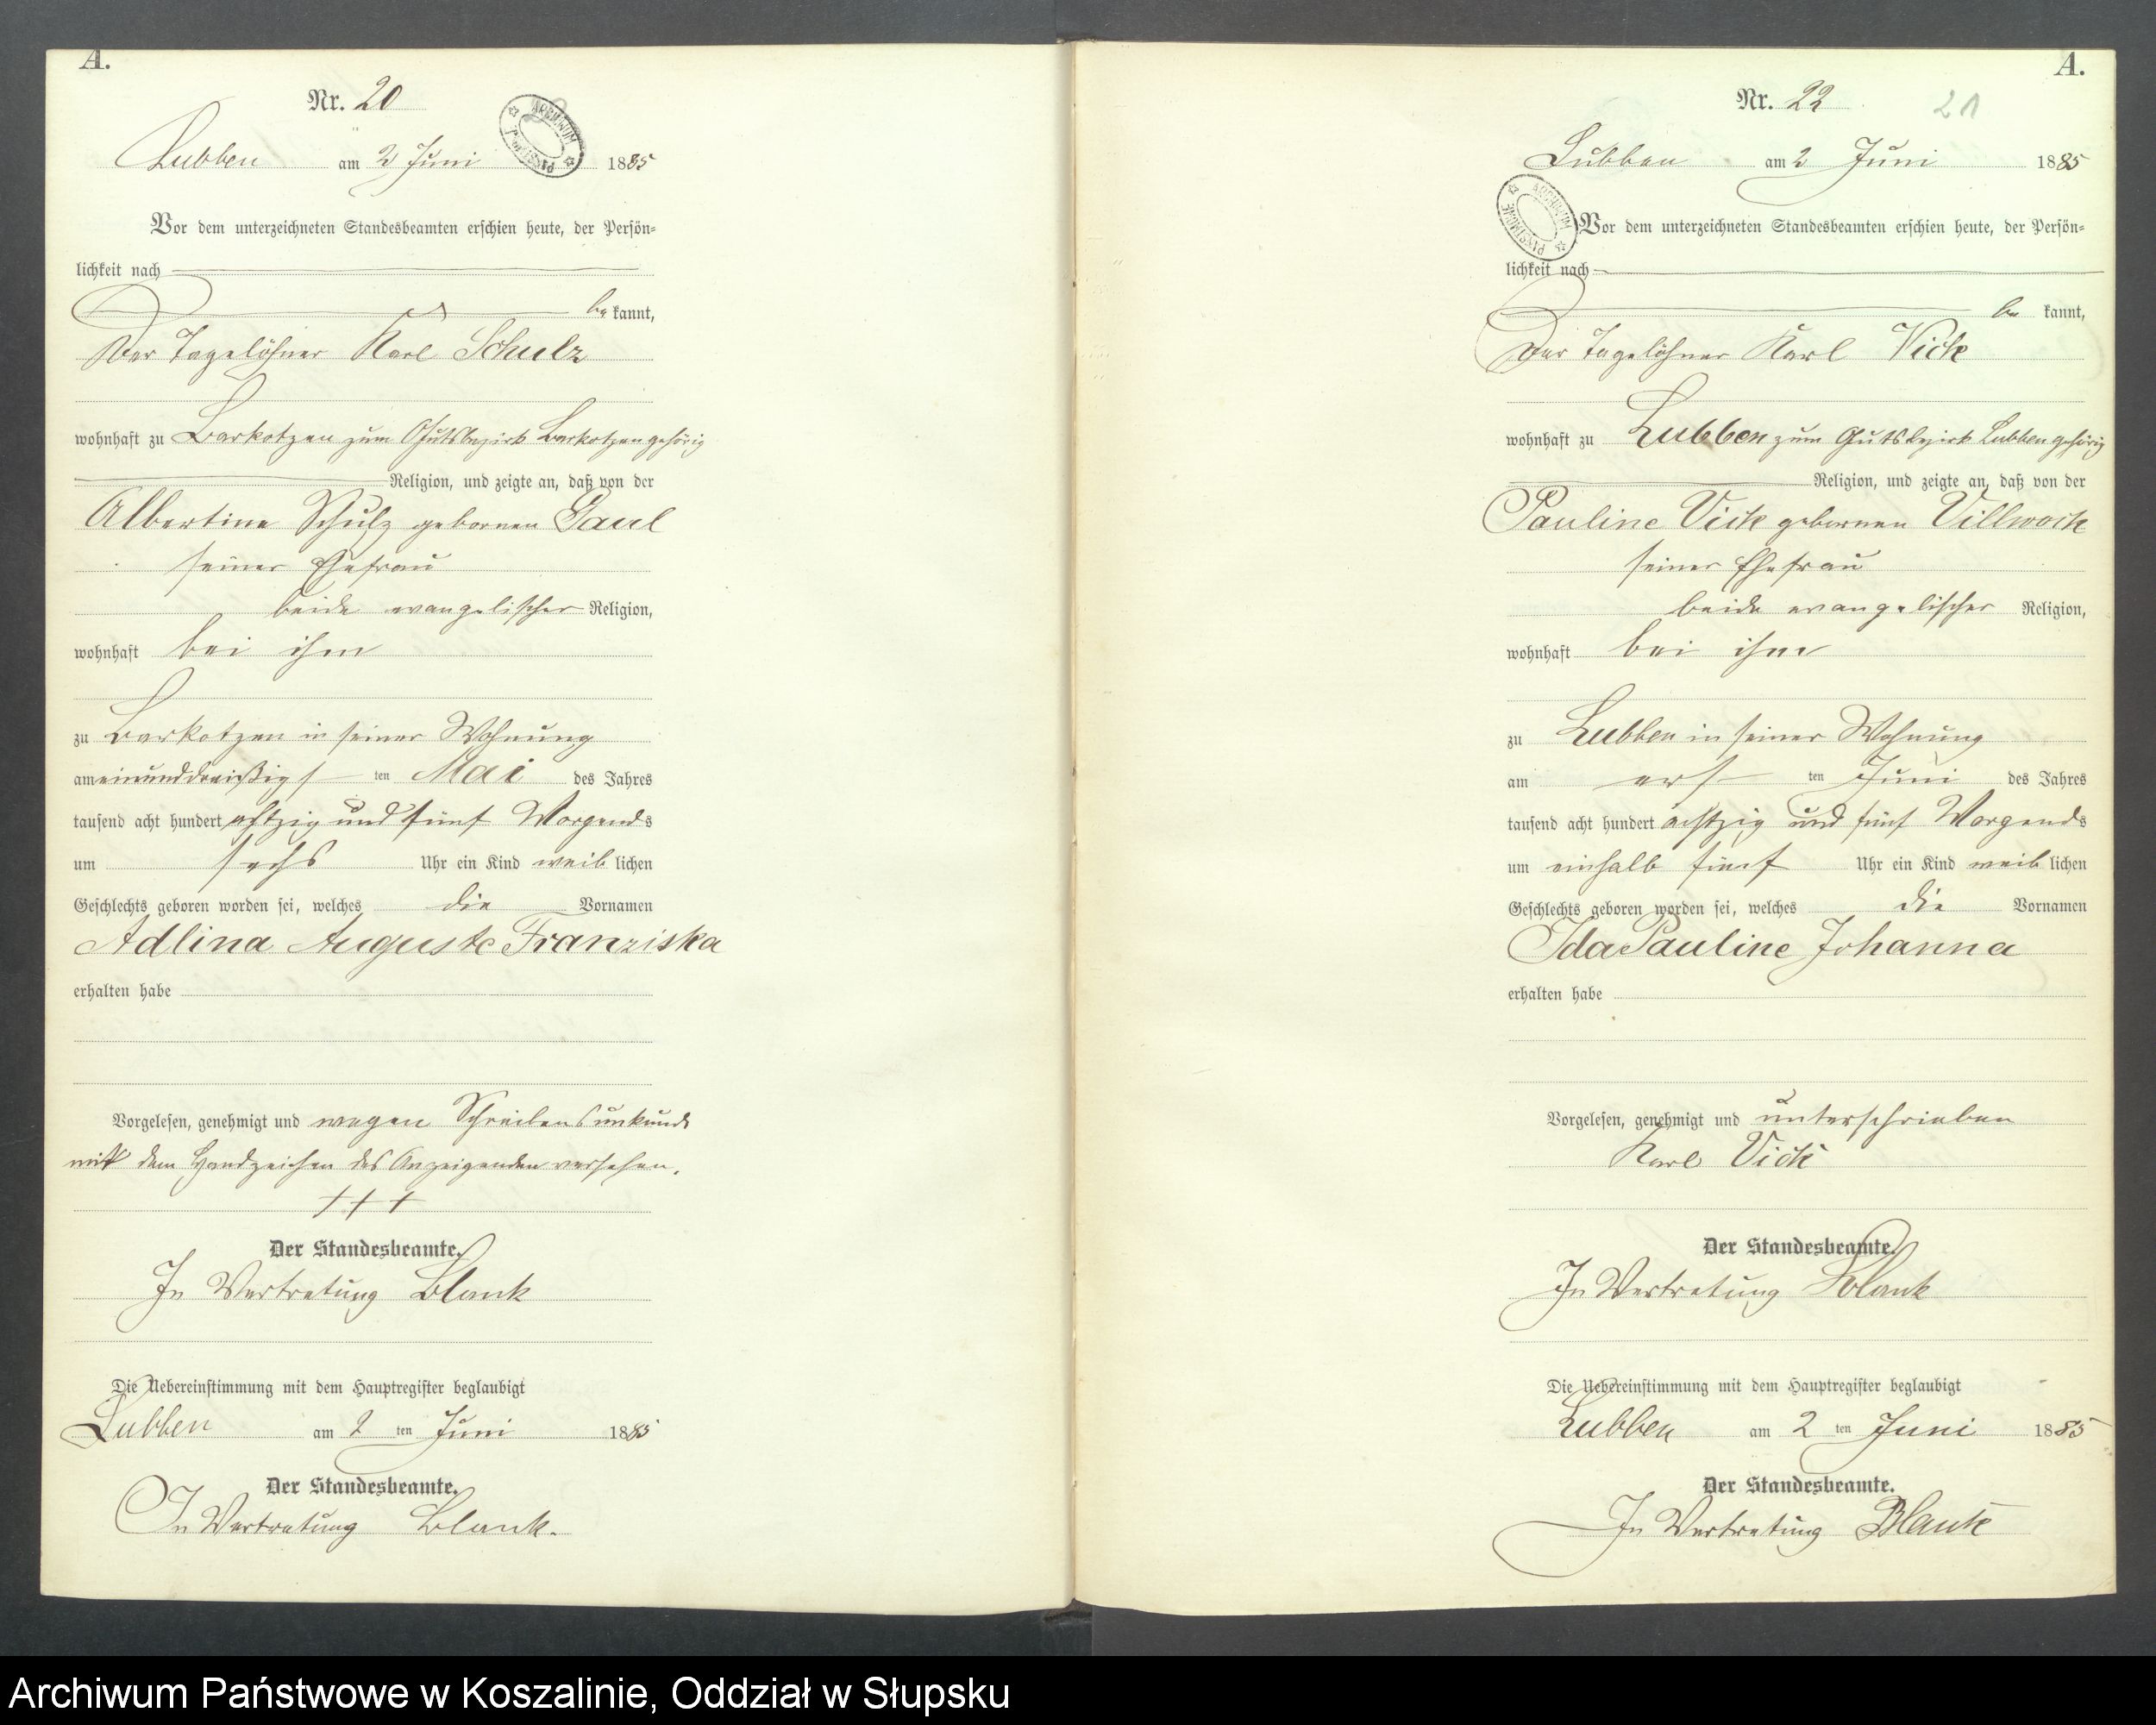 A.
Nr. 20
Lubben am 2 Juni 1885
Vor dem unterzeichneten Standesbeamten erschien heute, der Persön=
lichkeit nach
be kannt,
Der Tagelöhner Karl Schulz
wohnhaft zu Barkotzen zum Gutsbezirk Barkotzen gehörig
Religion, und zeigte an, daß von der
Albertine Schulz gebornen Gaul
seiner Ehefrau
beide evangelischer Religion,
wohnhaft bei ihm
zu Barkotzen in seiner Wohnung
am einunddreißigs ten Mai des Jahres
tausend acht hundert achtzig und fünf Morgends
um sechs Uhr ein Kind weib lichen
Geschlechts geboren worden sei, welches die Vornamen
Adlina Auguste Franziska
erhalten habe
Vorgelesen, genehmigt und wegen Schreibensunkunde
mit dem Handzeichen des Anzeigenden versehen.
+++
Der Standesbeamte.
In Vertretung Blank
Die Uebereinstimmung mit dem Hauptregister beglaubigt
Lubben am 2 ten Juni 1885
Der Standesbeamte.
In Vertretung Blank.
A.
Nr. 22
21
Lubben am 2 Juni 1885
Vor dem unterzeichneten Standesbeamten erschien heute, der Persön=
lichkeit nach
be kannt,
Der Tagelöhner Karl Vick
wohnhaft zu Lubben zum Gutsbezirk Lubben gehörig
Religion, und zeigte an, daß von der
Pauline Vick gebornen Villwock
seiner Ehefrau
beide evangelischer Religion,
wohnhaft bei ihm
zu Lubben in seiner Wohnung
am ers ten Juni des Jahres
tausend acht hundert achtzig und fünf Morgends
um einhalb fünf Uhr ein Kind weib lichen
Geschlechts geboren worden sei, welches die Vornamen
Ida Pauline Johanna
erhalten habe
Vorgelesen, genehmigt und unterschrieben
Karl Vick
Der Standesbeamte.
In Vertretung Blank
Die Uebereinstimmung mit dem Hauptregister beglaubigt
Lubben am 2 ten Juni 1885
Der Standesbeamte.
In Vertretung Blank
Archiwum Państwowe w Koszalinie, Oddział w Słupsku